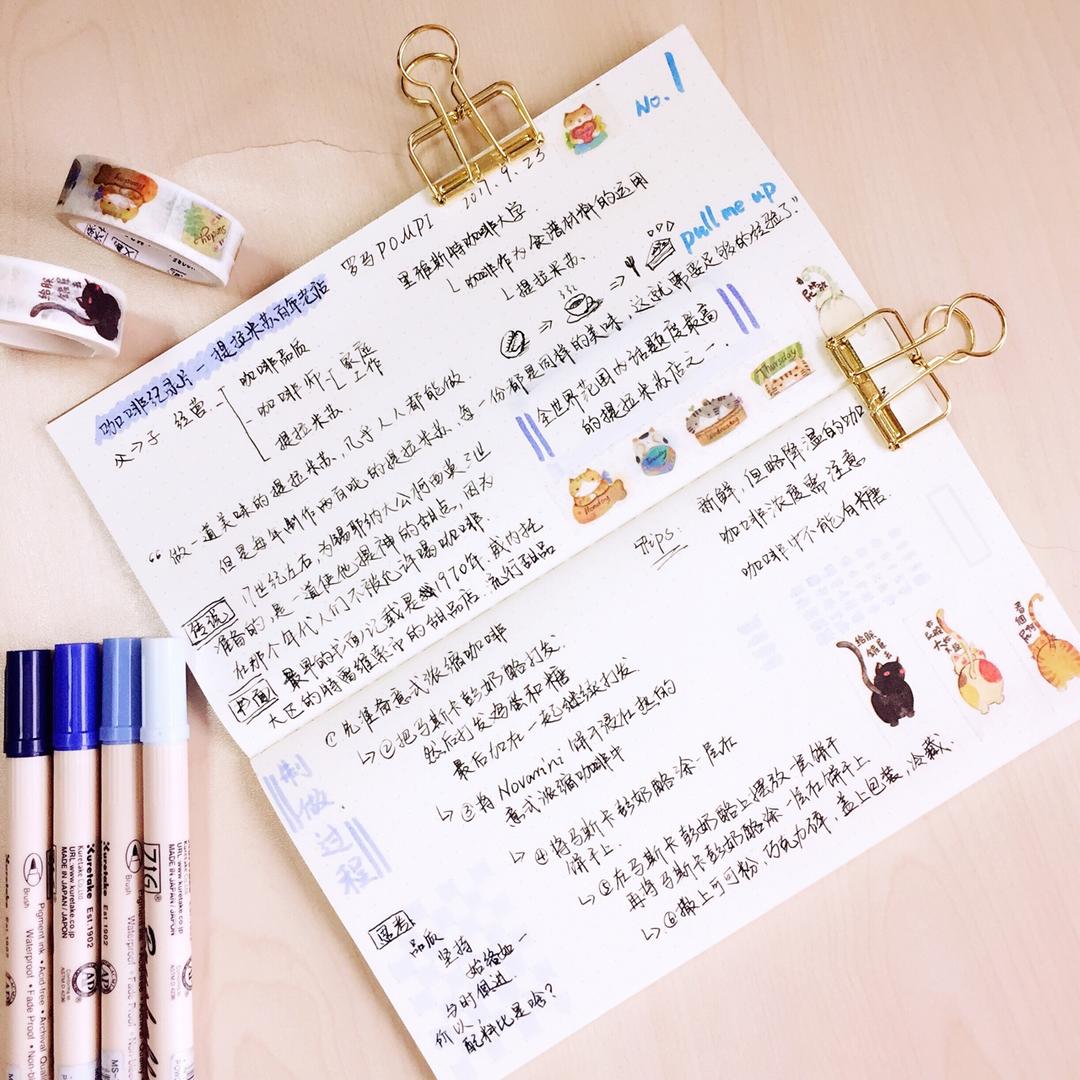 No.1
2017.9.23
罗马 POMPI
里雅斯特咖啡大学
咖啡作为食谱材料的运用
提拉米苏.
pull me up
咖啡纪录片 - 提拉米苏百年老店
父→子 经营
咖啡品质
咖啡师 家庭
工作
提拉米苏.
“做一道美味的提拉米苏,几乎人人都能做.
但是每年制作两百吨的提拉米苏,每一份都是同样的美味,这就需要足够的经验了.”
全世界范围内话题度最高
的提拉米苏店之一.
Monday
Tuesday
Wednesday
Thursday
传说
17世纪左右,为锡耶纳大公柯西莫三世
准备的,是一道使他提神的甜点,因为
在那个年代人们不被允许喝咖啡
书面
最早的书面记载是1970年 威内托
大区的特雷维索中的甜品店 流行甜品
Tips:
新鲜,但略降温的咖
咖啡浓度需注意
咖啡中不能有糖.
制做过程
①先准备意式浓缩咖啡
②把马斯卡彭奶酪打发.
然后打发鸡蛋和糖
最后加在一起继续打发.
③将Novarini饼干浸在热的
意式浓缩咖啡中
④将马斯卡彭奶酪涂一层在
饼干上.
⑤在马斯卡彭奶酪上摆放一隻饼干
再将马斯卡彭奶酪涂一层在饼干上
⑥撒上可可粉,巧克力碎,盖上包装,冷藏.
思考
品质
坚持
始终如一
与时俱进.
价以,
配料比是啥?
给朕
Sunday
ZIG
Brush
Kuretake Est.1902
Kuretake Co.Ltd.
URL:www.kuretake.co.jp
MADE IN JAPAN / JAPON
Pigment ink • Acid free • Archival Quality
Waterproof • Fade Proof
AP